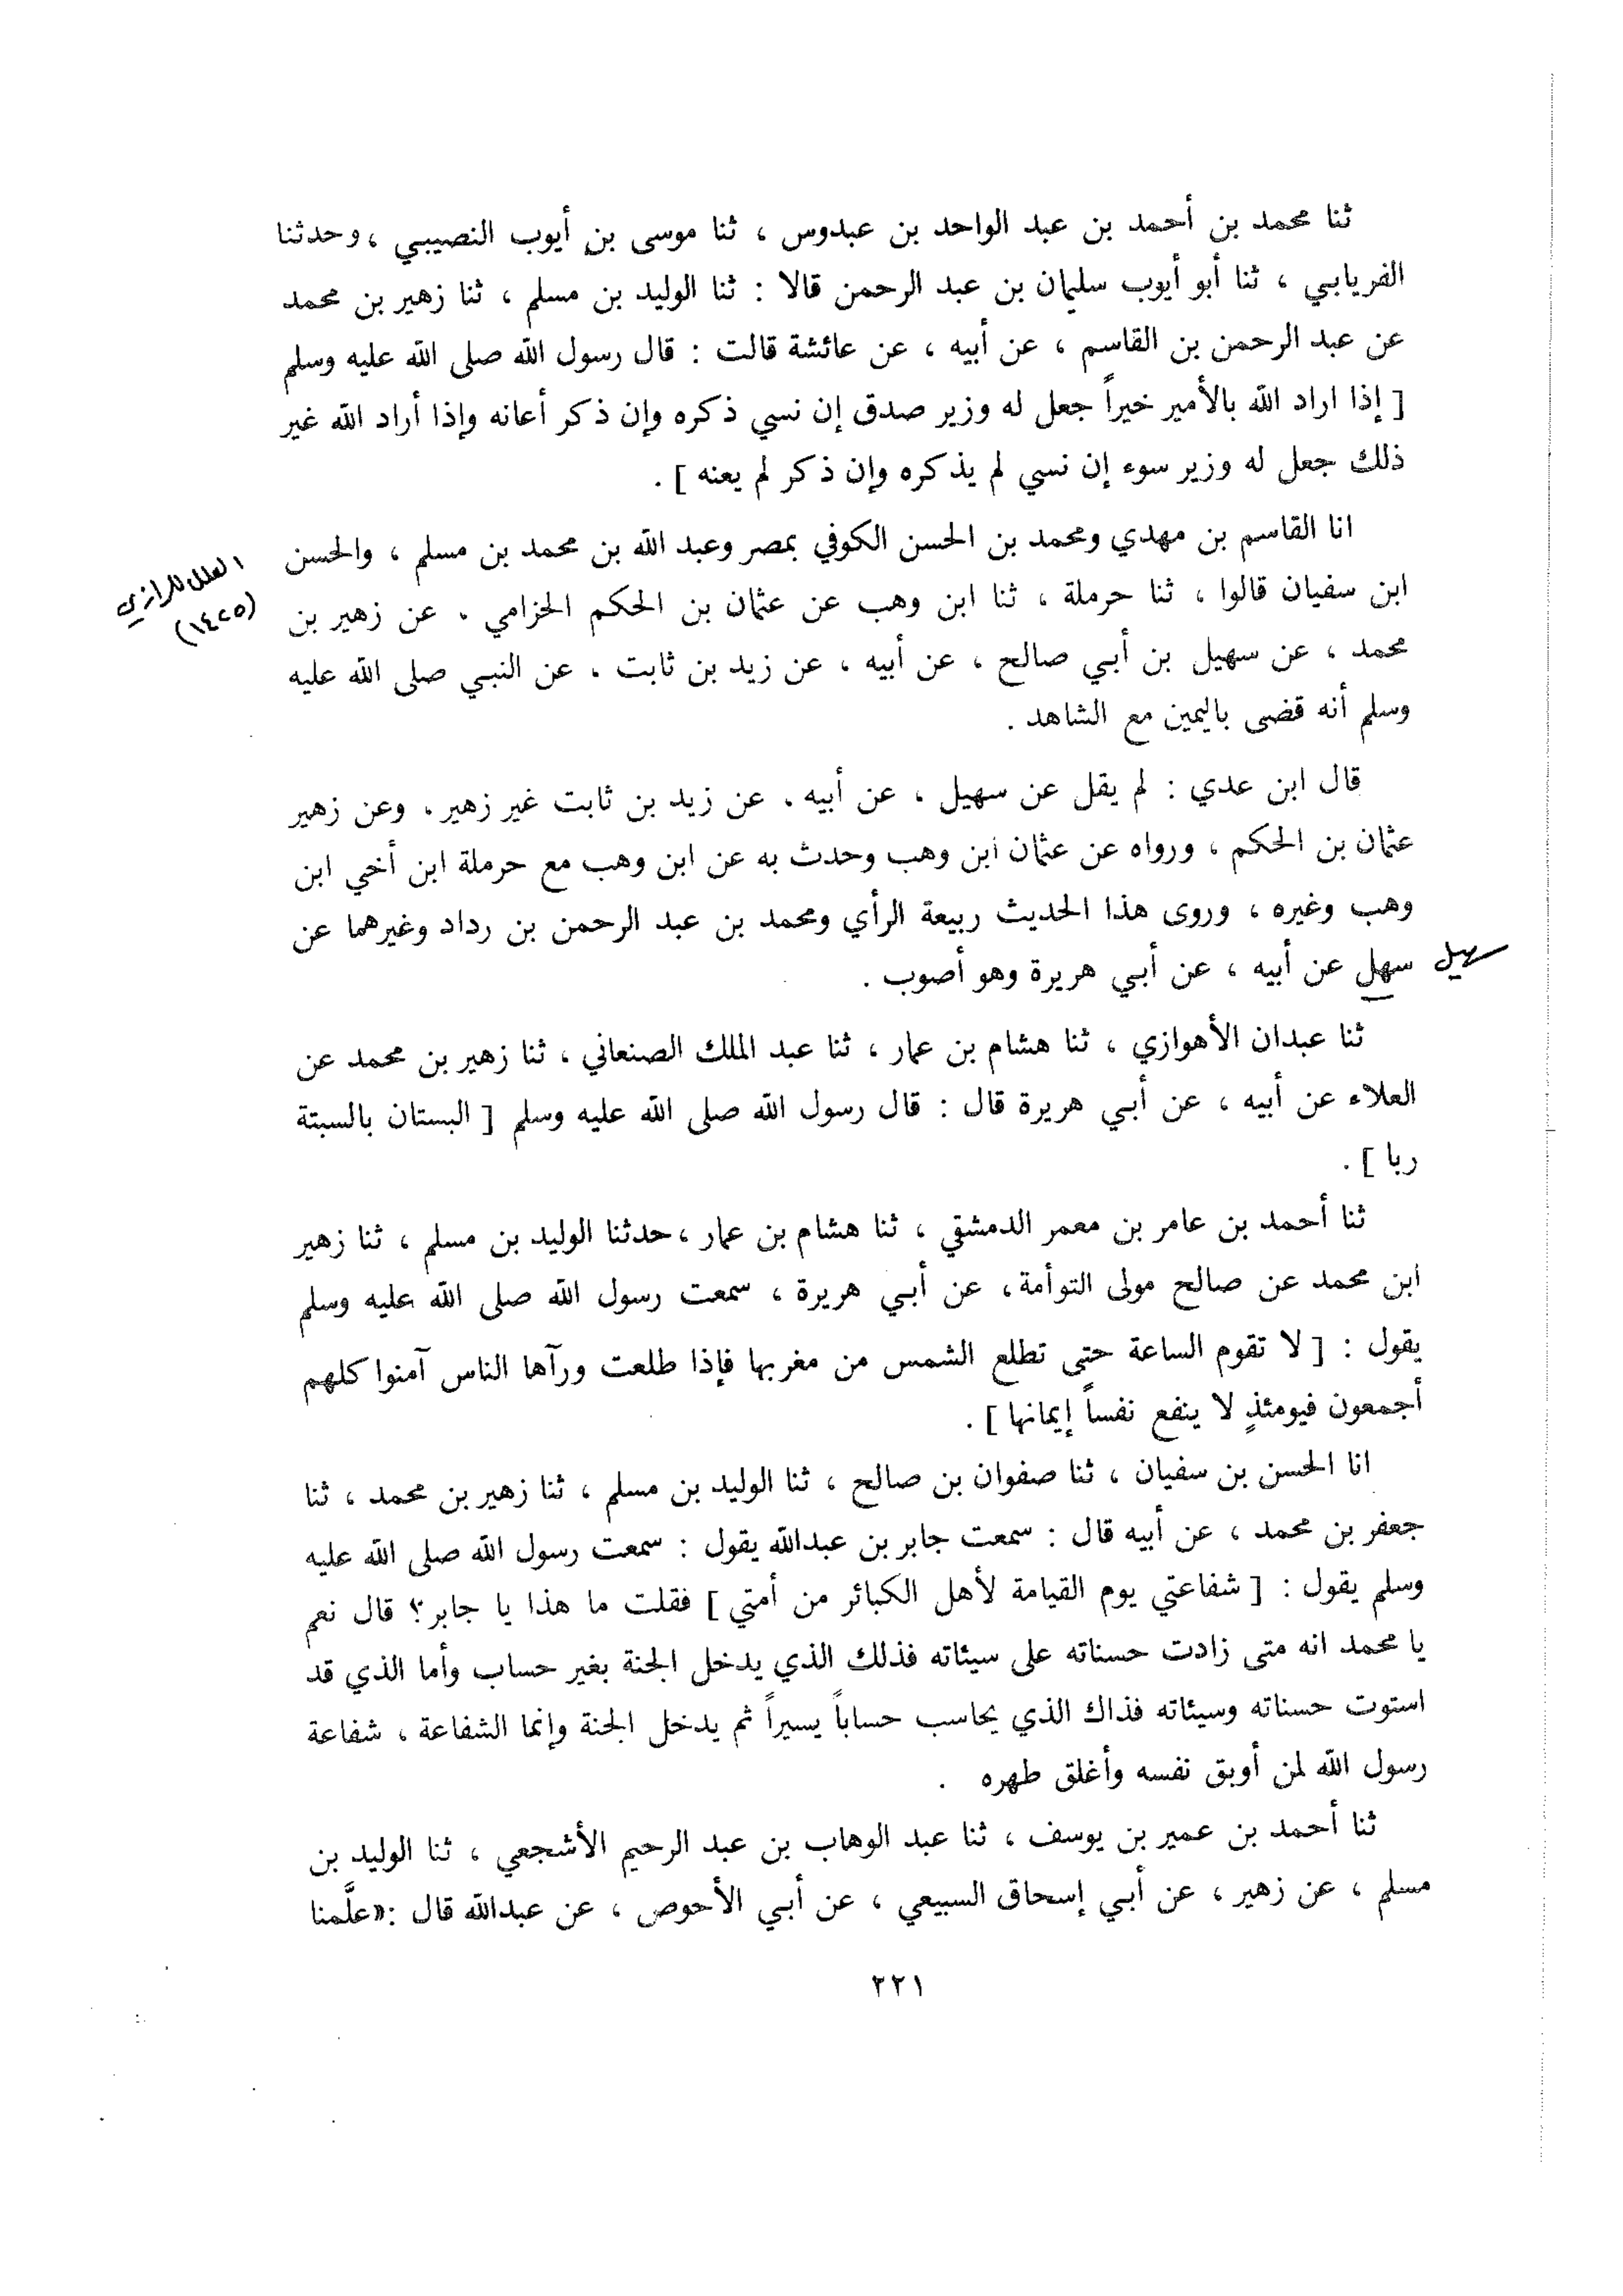 ثنا محمد بن أحمد بن عبد الواحد بن عبدوس ، ثنا موسى بن أيوب النصيبي ، وحدثنا
الفريابي ، ثنا أبو أيوب سليمان بن عبد الرحمن قالا : ثنا الوليد بن مسلم ، ثنا زهير بن محمد
عن عبد الرحمن بن القاسم ، عن أبيه ، عن عائشة قالت : قال رسول الله صلى الله عليه وسلم
[ إذا اراد الله بالأمير خيراً جعل له وزير صدق إن نسي ذكره وإن ذكر أعانه وإذا أراد الله غير
ذلك جعل له وزير سوء إن نسي لم يذكره وإن ذكر لم يعنه ] .
انا القاسم بن مهدي ومحمد بن الحسن الكوفي بمصر وعبد الله بن محمد بن مسلم ، والحسن
العلل للرازي
(١٤٢٥)
ابن سفيان قالوا ، ثنا حرملة ، ثنا ابن وهب عن عثمان بن الحكم الحزامي . عن زهير بن
محمد ، عن سهيل بن أبي صالح ، عن أبيه ، عن زيد بن ثابت . عن النبي صلى الله عليه
وسلم أنه قضى باليمين مع الشاهد .
قال ابن عدي : لم يقل عن سهيل ، عن أبيه . عن زيد بن ثابت غير زهير . وعن زهير
عثمان بن الحكم ، ورواه عن عثمان ابن وهب وحدث به عن ابن وهب مع حرملة ابن أخي ابن
وهب وغيره ، وروى هذا الحديث ربيعة الرأي ومحمد بن عبد الرحمن بن رداد وغيرهما عن
سهيل
سهل عن أبيه ، عن أبي هريرة وهو أصوب .
ثنا عبدان الأهوازي ، ثنا هشام بن عمار ، ثنا عبد الملك الصنعاني ، ثنا زهير بن محمد عن
العلاء عن أبيه ، عن أبي هريرة قال : قال رسول الله صلى الله عليه وسلم [ البستان بالسبتة
ربا ] .
ثنا أحمد بن عامر بن معمر الدمشقي ، ثنا هشام بن عمار ، حدثنا الوليد بن مسلم ، ثنا زهير
ابن محمد عن صالح مولى التوأمة ، عن أبي هريرة ، سمعت رسول الله صلى الله عليه وسلم
يقول : [ لا تقوم الساعة حتى تطلع الشمس من مغربها فإذا طلعت ورآها الناس آمنوا كلهم
أجمعون فيومئذٍ لا ينفع نفساً إيمانها ] .
انا الحسن بن سفيان ، ثنا صفوان بن صالح ، ثنا الوليد بن مسلم ، ثنا زهير بن محمد ، ثنا
جعفر بن محمد ، عن أبيه قال : سمعت جابر بن عبدالله يقول : سمعت رسول الله صلى الله عليه
وسلم يقول : [ شفاعتي يوم القيامة لأهل الكبائر من أمتي ] فقلت ما هذا يا جابر ؟ قال نعم
يا محمد انه متى زادت حسناته على سيئاته فذلك الذي يدخل الجنة بغير حساب وأما الذي قد
استوت حسناته وسيئاته فذاك الذي يحاسب حساباً يسيراً ثم يدخل الجنة وإنما الشفاعة ، شفاعة
رسول الله لمن أوبق نفسه وأغلق طهره .
ثنا أحمد بن عمير بن يوسف ، ثنا عبد الوهاب بن عبد الرحيم الأشجعي ، ثنا الوليد بن
مسلم ، عن زهير ، عن أبي إسحاق السبيعي ، عن أبي الأحوص ، عن عبدالله قال : «علَّمنا
٢٢١